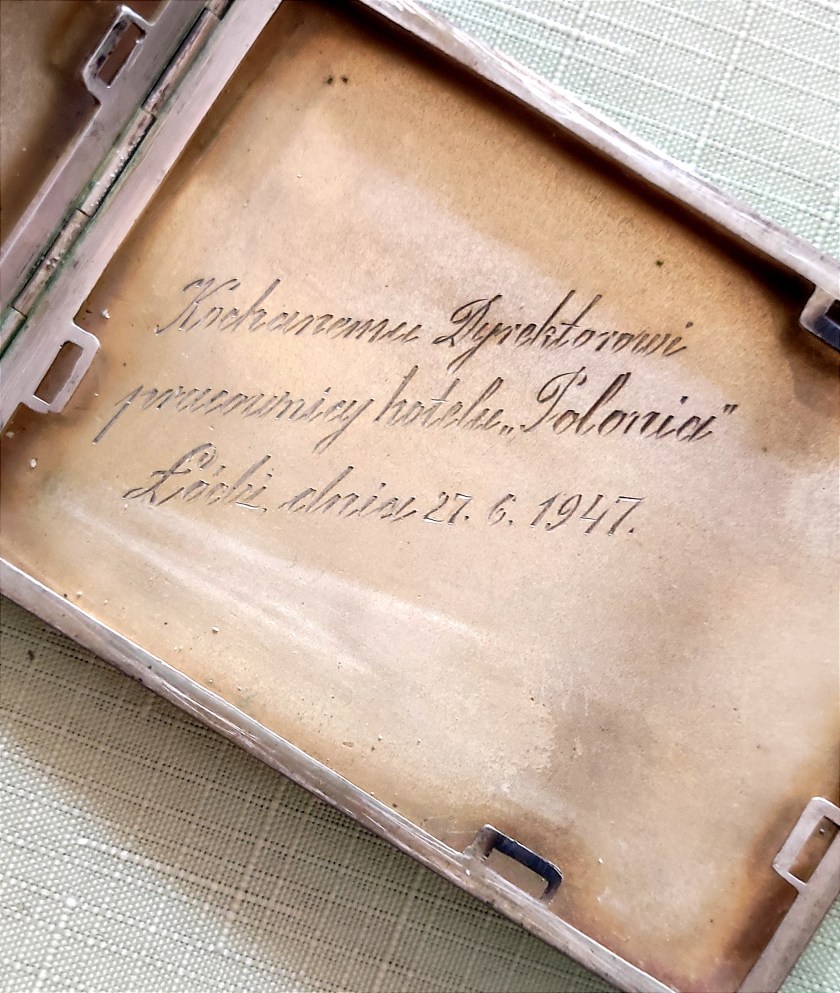 Kochanemu Dyrektorowi
pracownicy hotelu „Polonia"
Łódź, dnia 27. 6. 1947.